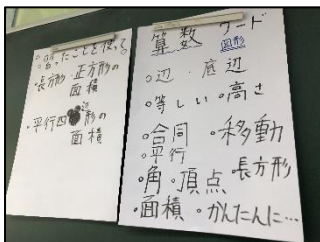 ったことを使える
・長方形・正方形の
面積
・平行四辺形の
面積
算数 ワード
図形
・辺・底辺
・等しい・高さ
・合同・移動
・平行
・角・頂点・長方形
・面積・かんたんに…